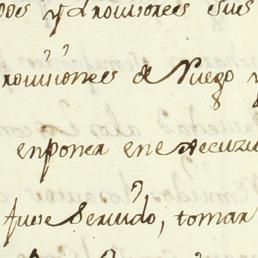 y provisiones sus
provisiones de Nuego y
enponer en execuzi
fuese Seruido, tomar